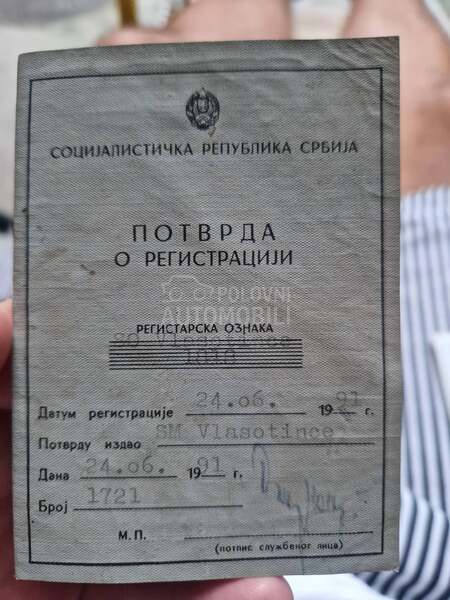 СОЦИЈАЛИСТИЧКА РЕПУБЛИКА СРБИЈА
ПОТВРДА
О РЕГИСТРАЦИЈИ
POLOVNI
AUTOMOBILI
РЕГИСТАРСКА ОЗНАКА
SO Vlasotince
Датум регистрације 24.o6. 1991 г.
Потврду издао SM Vlasotince
Дана 24.o6. 1991 г.
Број 1721
М. П.
(потпис службеног лица)